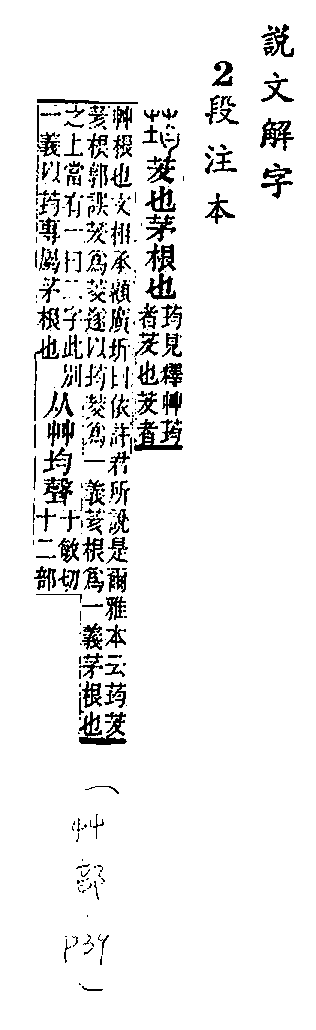 說文解字
2段注本
荺 茇也茅根也
荺見釋艸荺
者茇也茇者
艸根也文相承顧廣圻曰依許君所說是爾雅本云荺茇
荄根郭誤茇爲茭遂以荺茭爲一義荄根爲一義茅根也
之上當有一曰二字此別
一義以荺專屬茅根也
从艸均聲
于敏切
十二部
（艸部．P39）